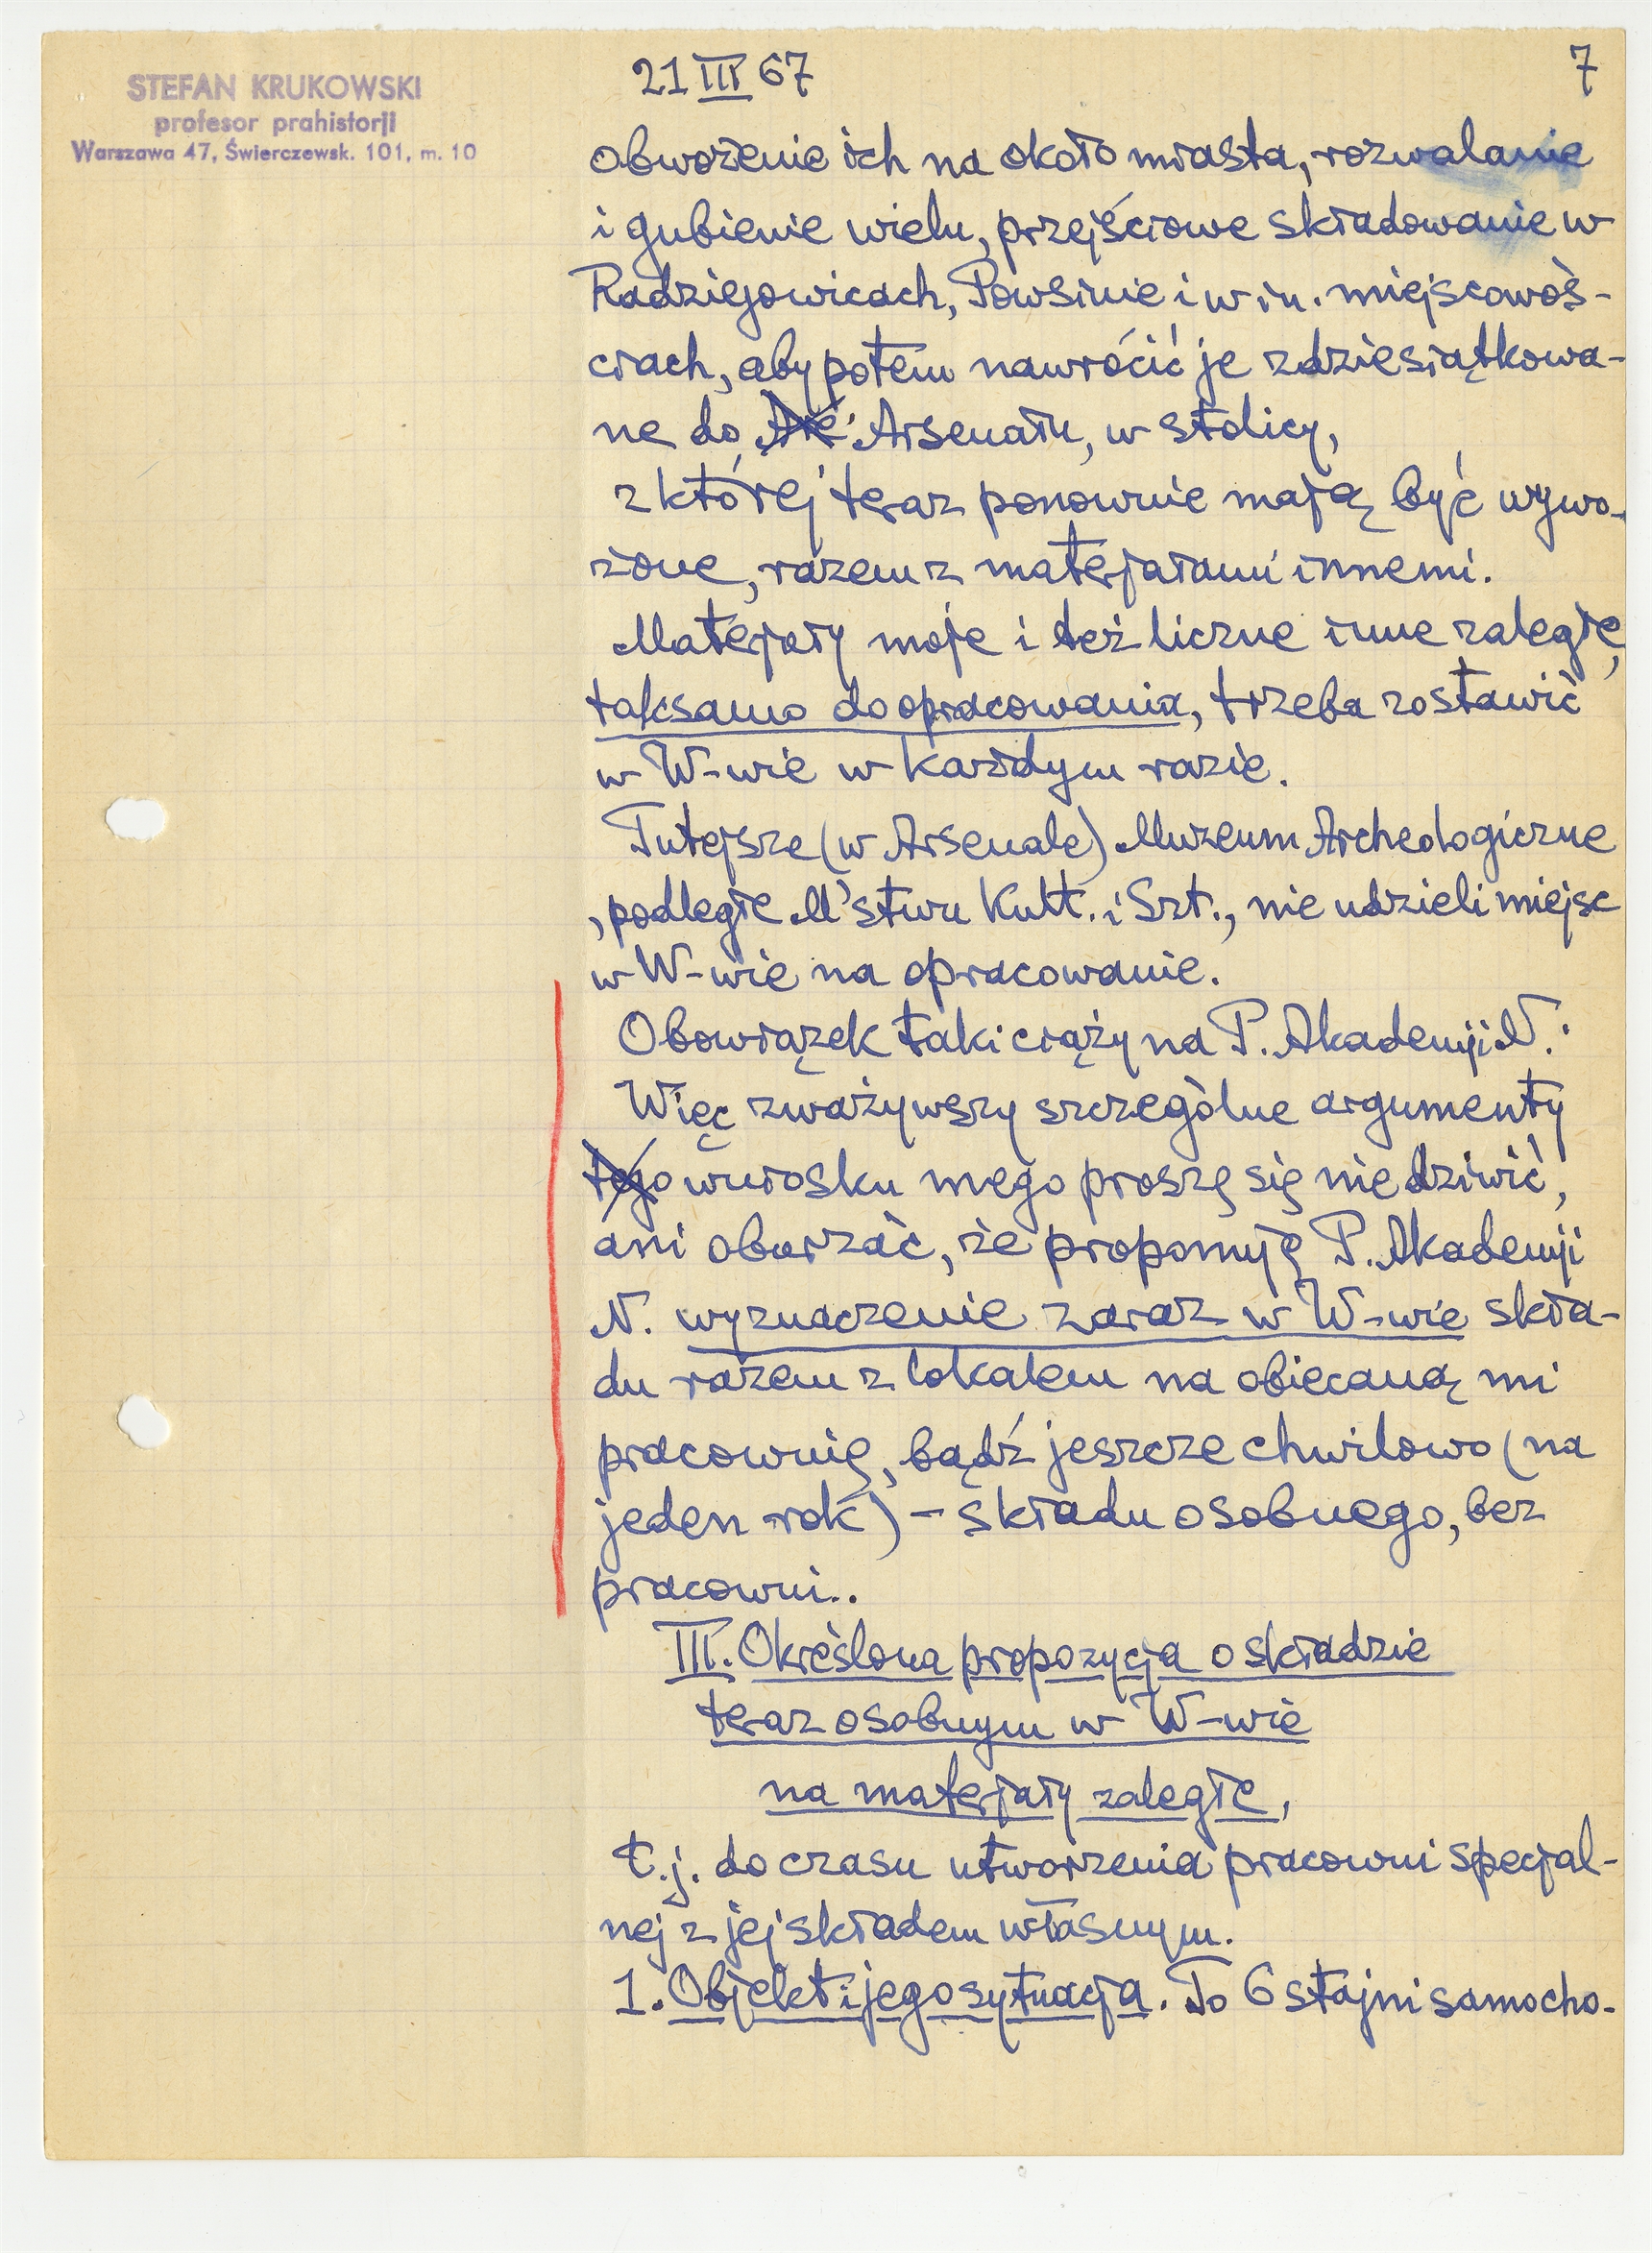 STEFAN KRUKOWSKI
profesor prahistorji
Warszawa 47, Świerczewsk. 101, m. 10
21 III 67
7
obwożenie ich na około miasta, rozwalanie
i gubienie wielu, przejściowe składowanie w
Radziejowicach, Powsinie i w in. miejscowoś-
ciach, aby potem nawrócić je zdziesiątkowa-
ne do Arsenału, w stolicy,
z której teraz ponownie mają być wywo-
żone, razem z materjałami innemi.
Materjały moje i też liczne inne zaległe,
taksamo do opracowania, trzeba zostawić
w W-wie w każdym razie.
Tutejsze (w Arsenale) Muzeum Archeologiczne
, podległe M'stwu Kult. i Szt., nie udzieli miejsc
w W-wie na opracowanie.
Obowiązek taki ciąży na P. Akademji N.
Więc zważywszy szczególne argumenty
tego wniosku mego proszę się nie dziwić,
ani oburzać, że proponuję P. Akademji
N. wyznaczenie zaraz w W-wie skła-
du razem z lokalem na obiecaną mi
pracownię, bądź jeszcze chwilowo (na
jeden rok) – składu osobnego, bez
pracowni..
III. Określona propozycja o składzie
teraz osobnym w W-wie
na materjały zaległe,
t.j. do czasu utworzenia pracowni specjal-
nej z jej składem własnym.
1. Objekt i jego sytuacja. To 6 stajni samocho-